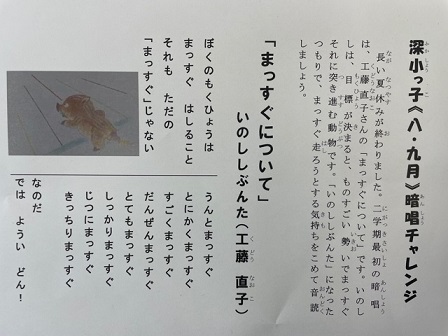 深小っ子《八・九月》暗唱チャレンジ
長い夏休みが終わりました。二学期最初の暗唱
は、工藤直子さんの「まっすぐについて」です。いのし
しは、目標が決まると、ものすごい勢いでまっすぐ
それに突き進む動物です。「いのししぶんた」になった
つもりで、まっすぐ走ろうとする気持ちをこめて音読
しましょう。
「まっすぐについて」
いのししぶんた(工藤 直子)
ぼくのもくひょうは
まっすぐ はしること
それも ただの
「まっすぐ」じゃない
うんとまっすぐ
とにかくまっすぐ
すごくまっすぐ
だんぜんまっすぐ
とてもまっすぐ
しっかりまっすぐ
じつにまっすぐ
きっちりまっすぐ
なのだ
では ようい どん！